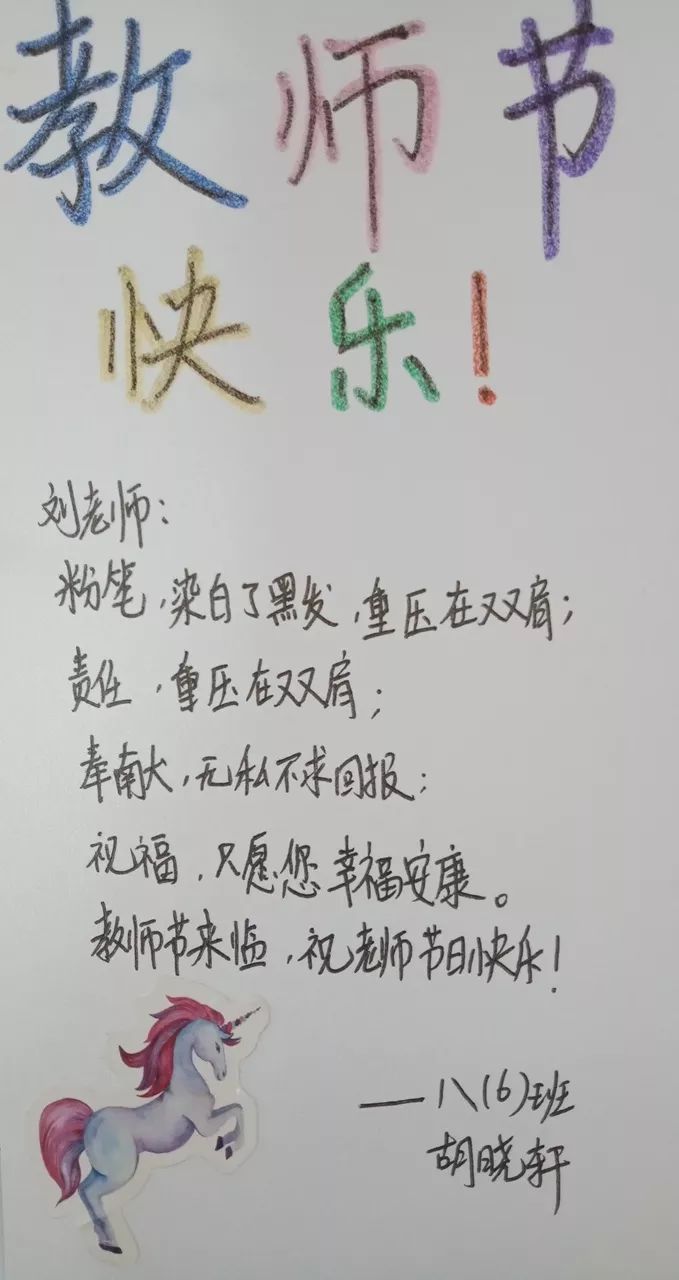 教师节
快乐!
刘老师:
粉笔,染白了黑发,重压在双肩;
责任,重压在双肩;
奉献,无私不求回报;
祝福,只愿您幸福安康。
教师节来临,祝老师节日快乐!
——八(6)班
胡晓轩